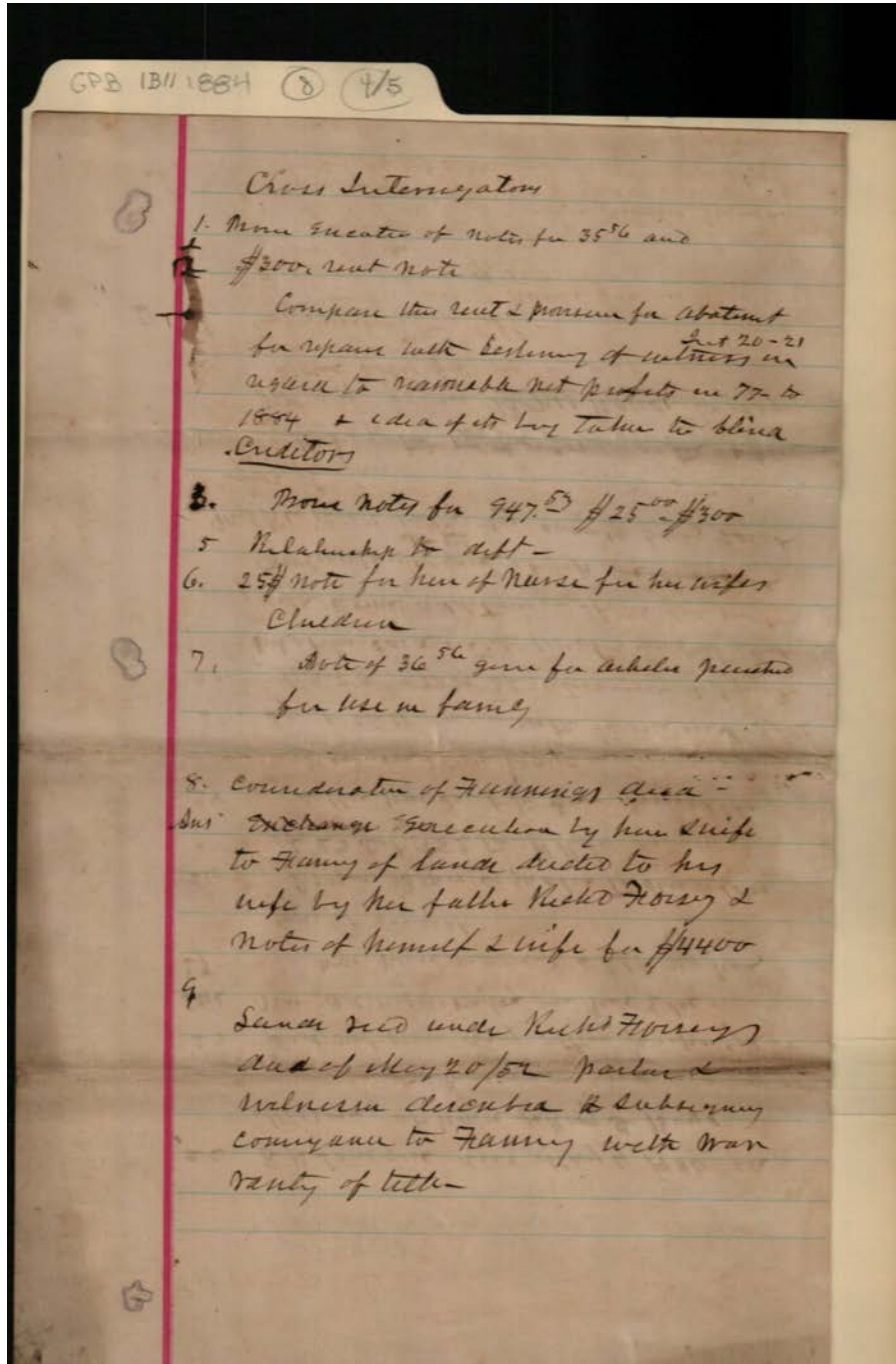 GPB IB11 1884 8 4/5
Cross Interrogatory
1. Prove of notes for 35 56 and
$300. rent note
Compare this rent & for abatement
Int 20-21
for repairs with testimony of witness in
regard to reasonable net profits in 77 to
1884 & idea of its being taken to blind
Creditors
3. Prove notes for 947.53 $25 00 - $300
5 Relationship to deft -
6. 25$ note for hire of Nurse for his wifes
Children
7. Note of 36 56 given for articles
for use in family
8. Consideration of deed -
Ans Exchange Execution by him & wife
to of lands deeded to his
wife by her father Richd &
notes of himself & wife for $4400
9
Lands under Richd
deed of May 20/52 &
described & subsequent
conveyance to with war
ranty of title -